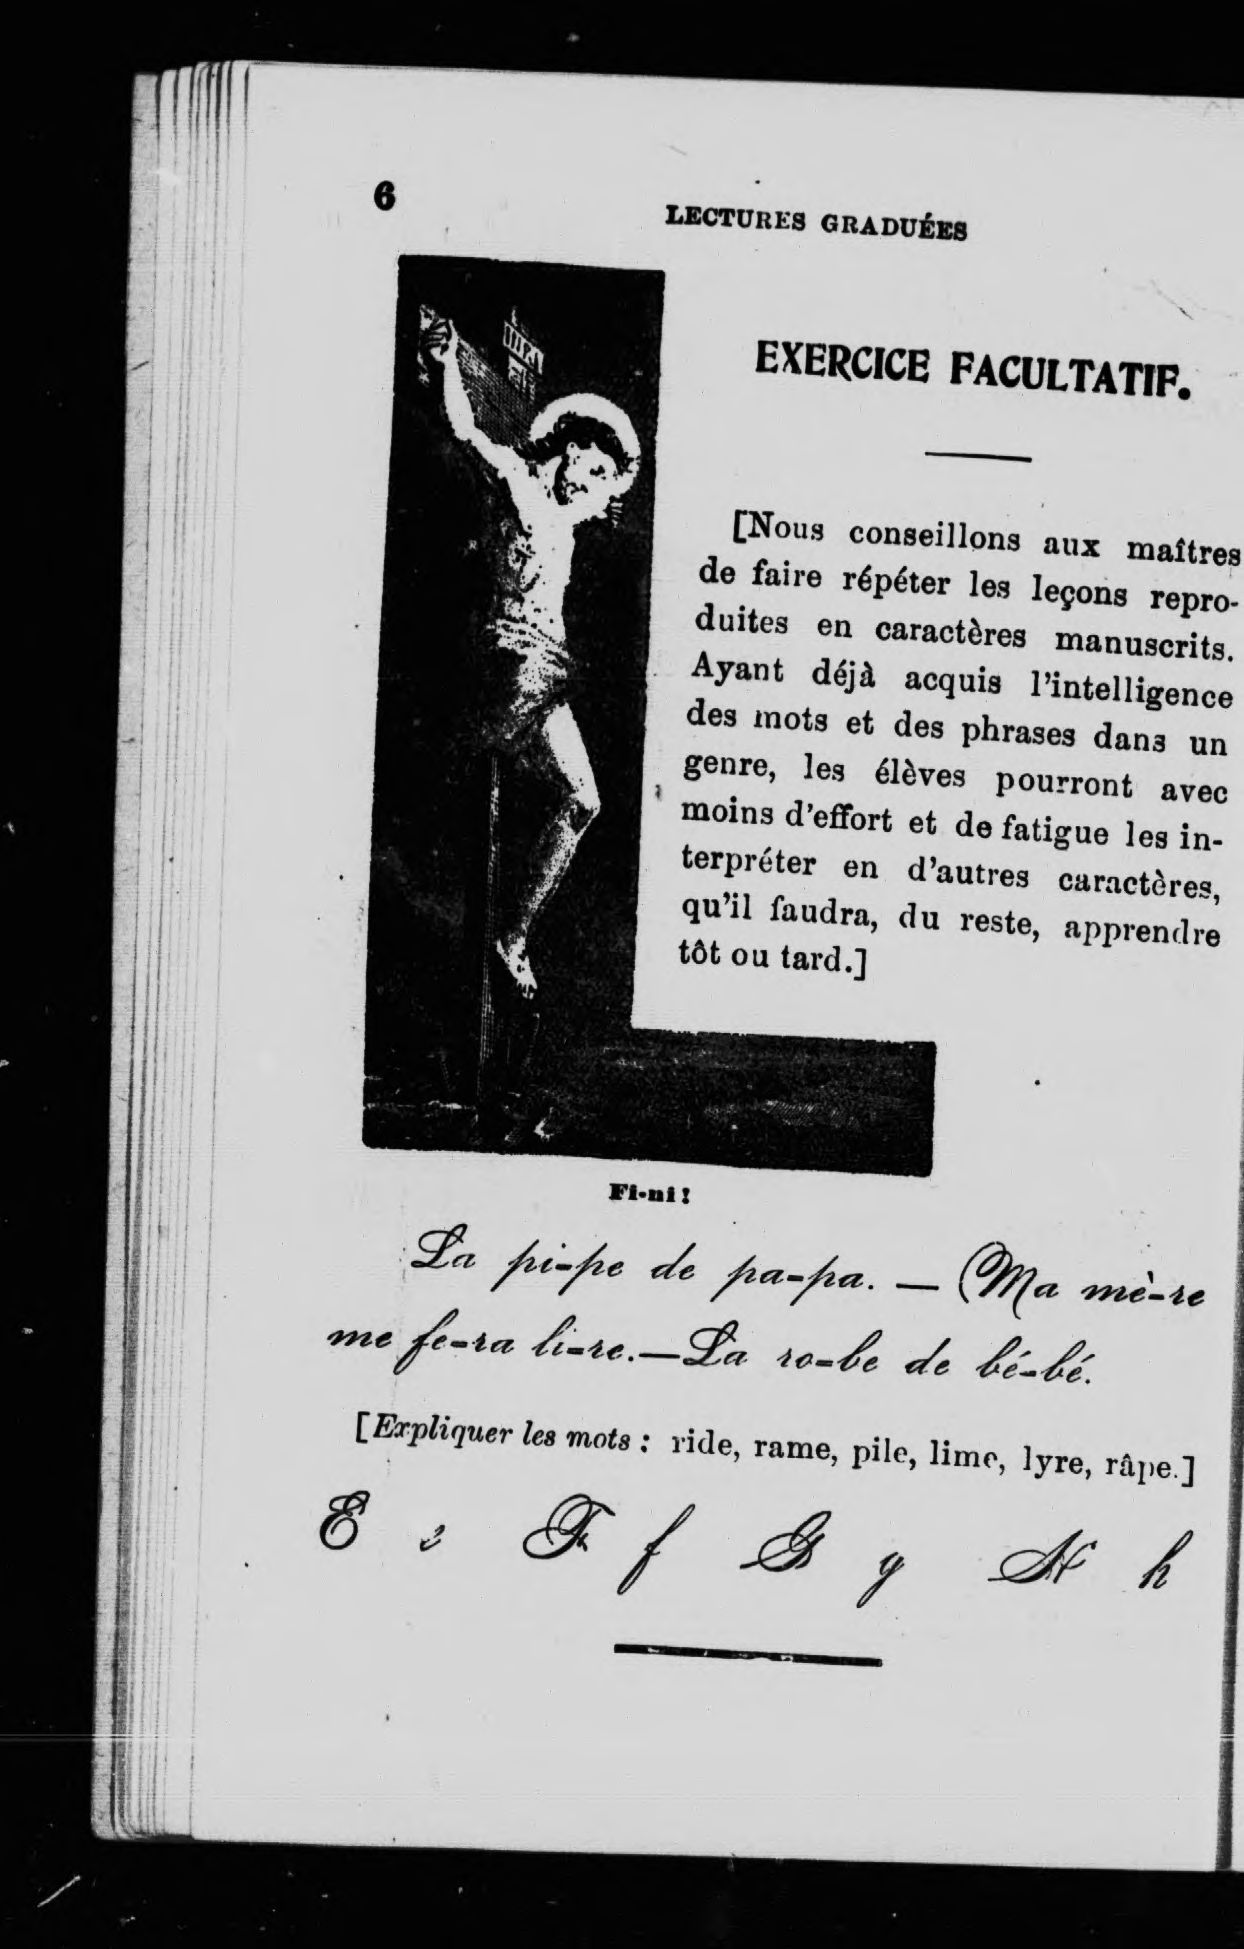 6
LECTURES GRADUÉES
EXERCICE FACULTATIF.
[Nous conseillons aux maîtres
de faire répéter les leçons repro-
duites en caractères manuscrits.
Ayant déjà acquis l'intelligence
des mots et des phrases dans un
genre, les élèves pourront avec
moins d'effort et de fatigue les in-
terpréter en d'autres caractères,
qu'il faudra, du reste, apprendre
tôt ou tard.]
Fi-ni!
La pi-pe de pa-pa. — Ma mè-re
me fe-ra li-re.—La ro-be de bé-bé.
[Expliquer les mots : ride, rame, pile, lime, lyre, râpe.]
E e F f G g H h